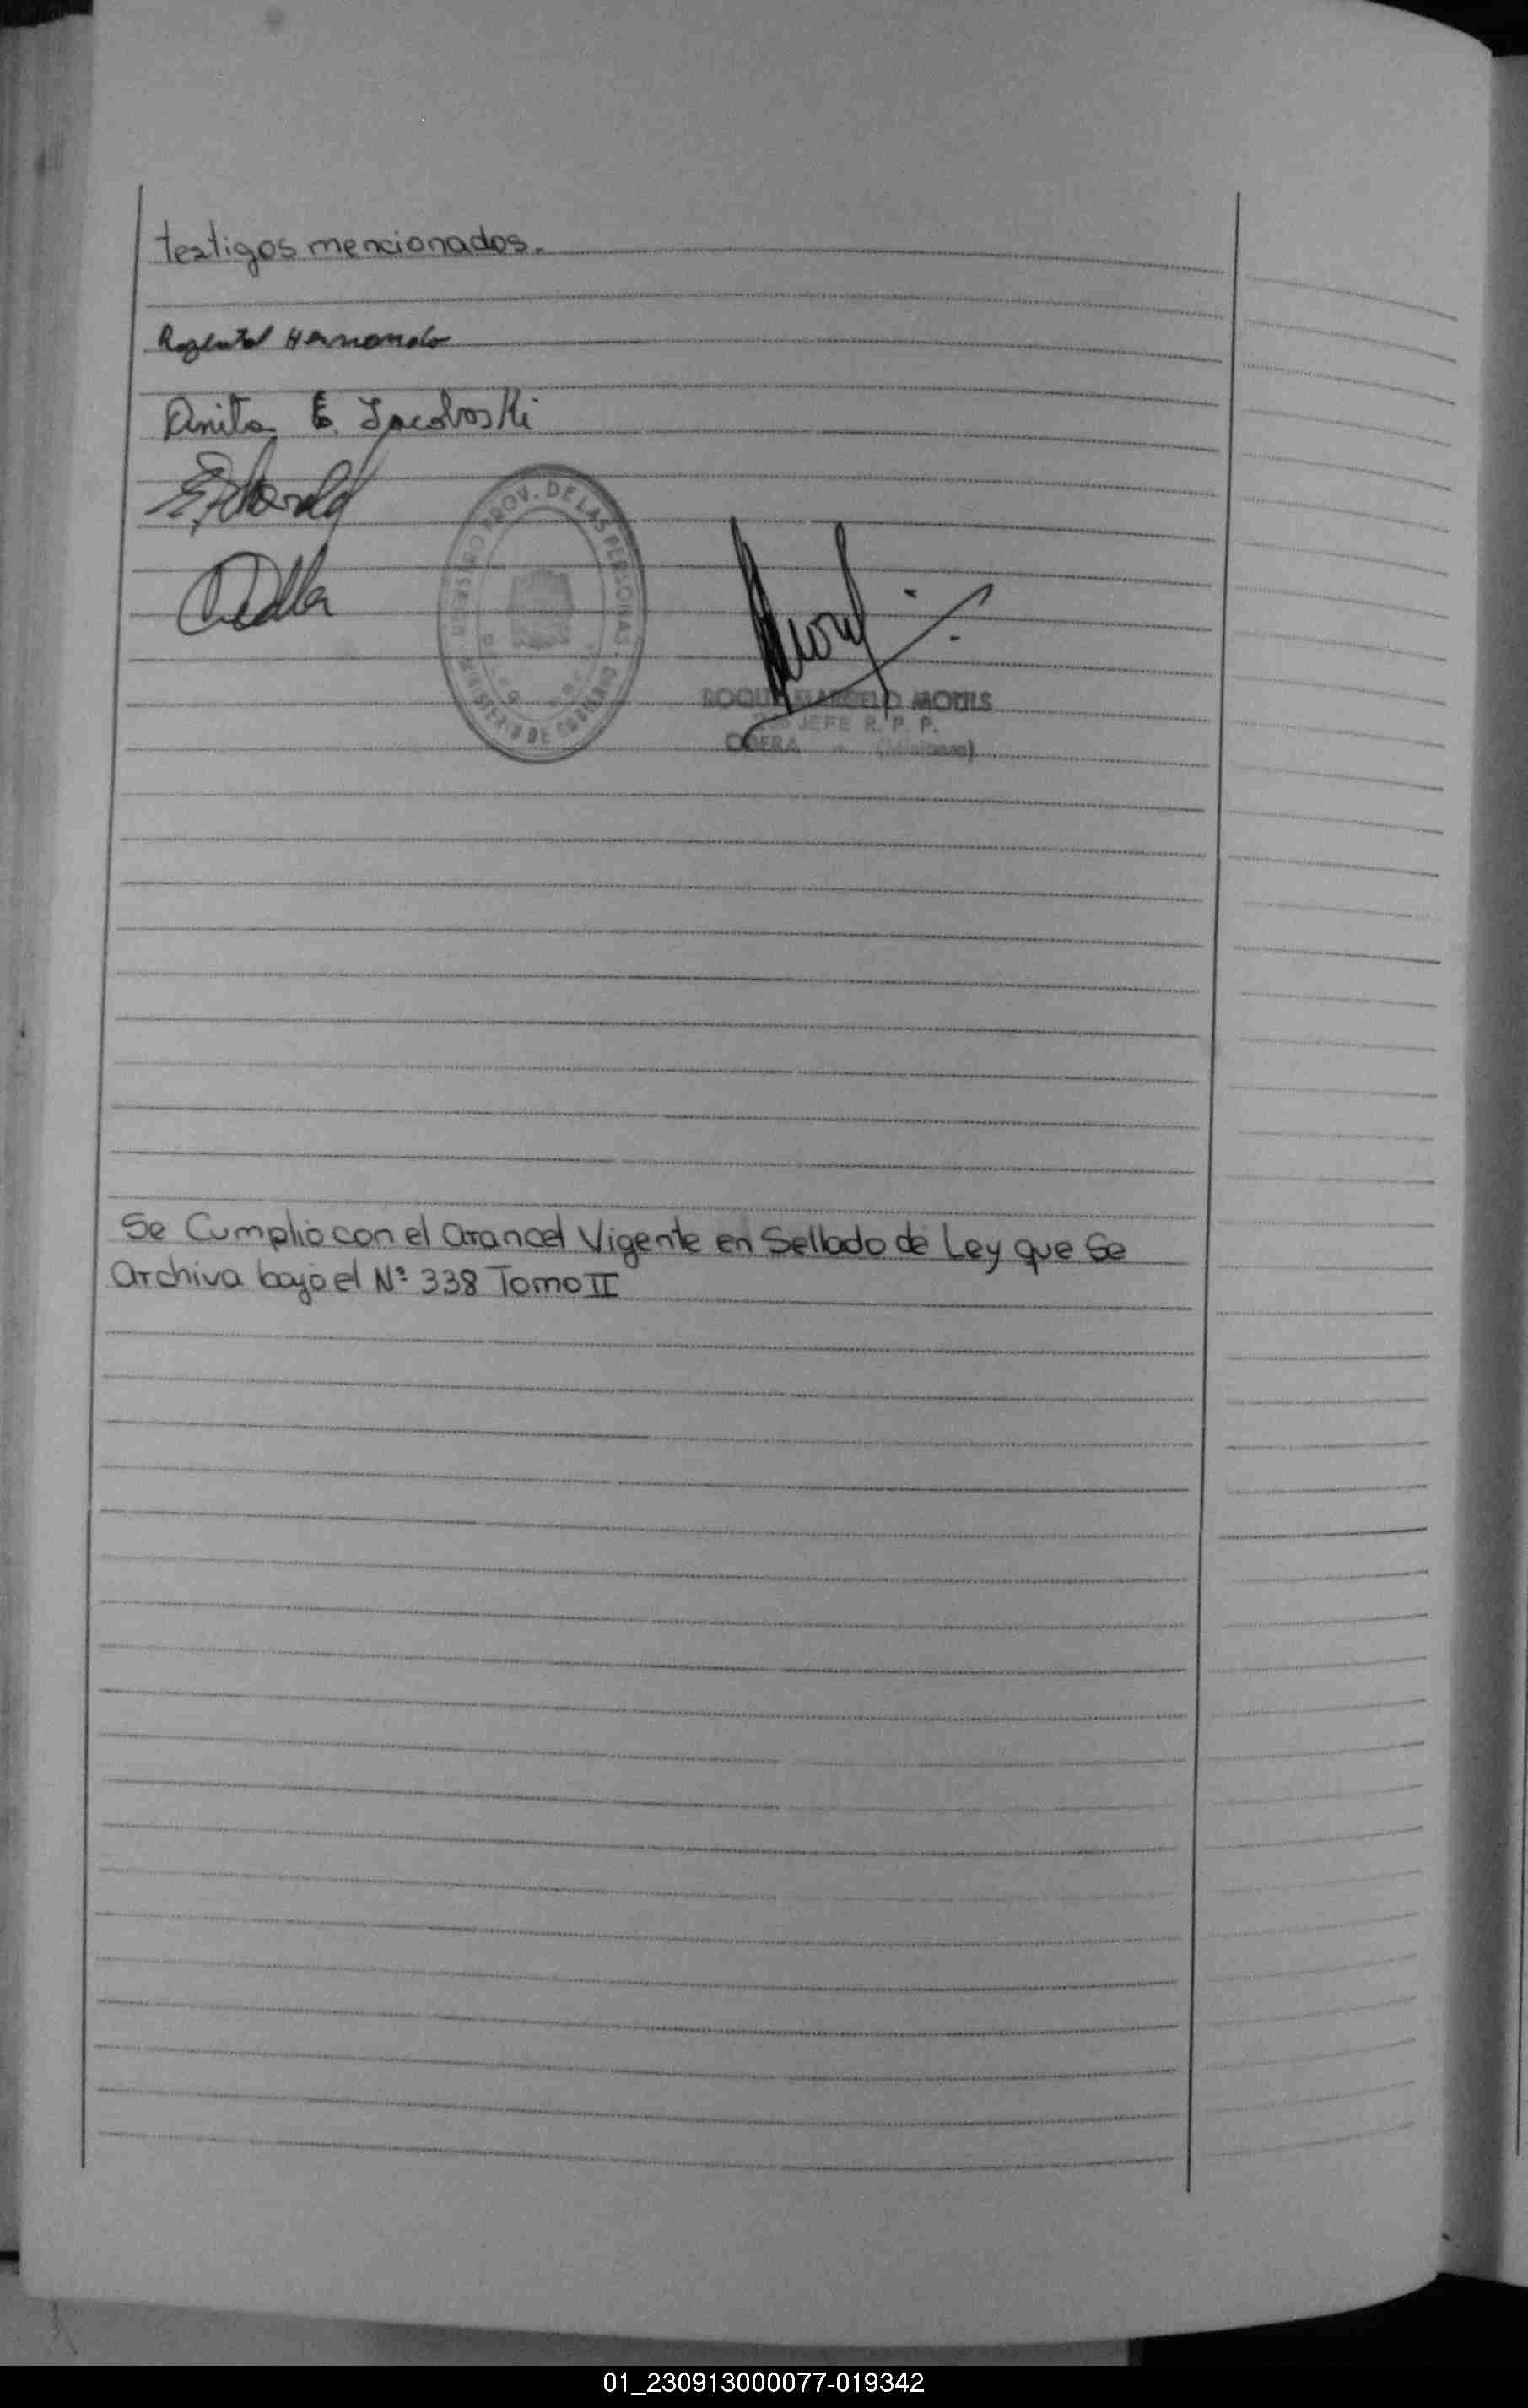 testigos mencionados.
Hernando
Anita E. Jacoboski
REGISTRO PROV. DE LAS PERSONAS
MINISTERIO DE GOBIERNO
ROQUE MARCELO
JEFE R. P. P.
OBERA - (Misiones)
Se Cumplio con el Arancel Vigente en Sellado de Ley que Se
Archiva bajo el Nº 338 Tomo II
01_230913000077-019342